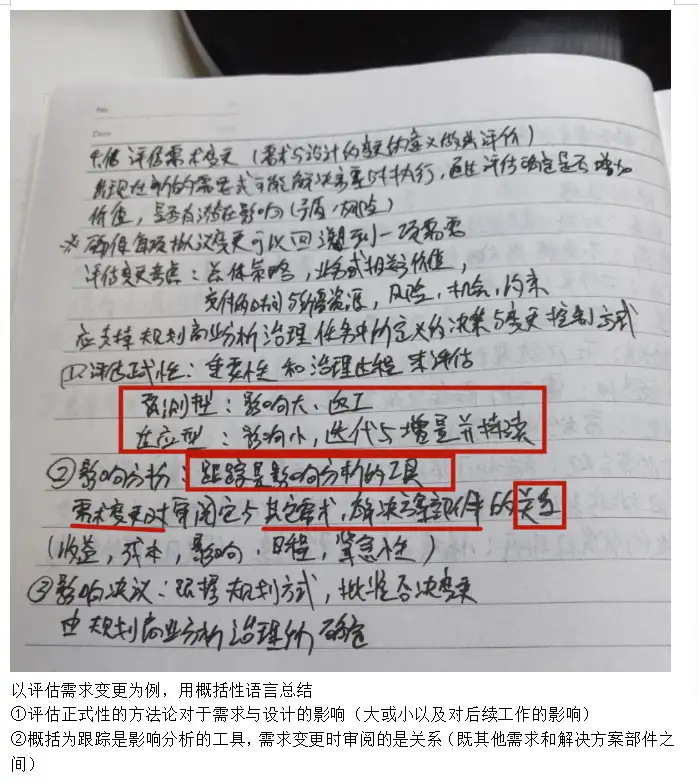 任务 评估需求变更（需求与设计的变更的意义做出评价）
发现在新的需求或可能解决方案时执行，通过评估确定是否增加
价值，是否有潜在影响（矛盾，风险）
※确保每项拟议变更可以回溯到一项需要
评估变更考点：总体策略，业务或相关方价值，
交付的时间与所需资源，风险，机会，约束
应支持规划商业分析治理任务中所定义的决策与变更控制方式
①评估正式性：重要性和治理过程来评估
预测型：影响大、返工
适应型：影响小，迭代与增量并持续
②影响分析：跟踪是影响分析的工具
需求变更时审阅它与其它需求，解决方案部件的关系
（收益，成本，影响，日程，紧急性）
③影响决议：根据规划方式，批准否决变更
由规划商业分析治理的确定
以评估需求变更为例，用概括性语言总结
①评估正式性的方法论对于需求与设计的影响（大或小以及对后续工作的影响）
②概括为跟踪是影响分析的工具，需求变更时审阅的是关系（既其他需求和解决方案部件之
间）